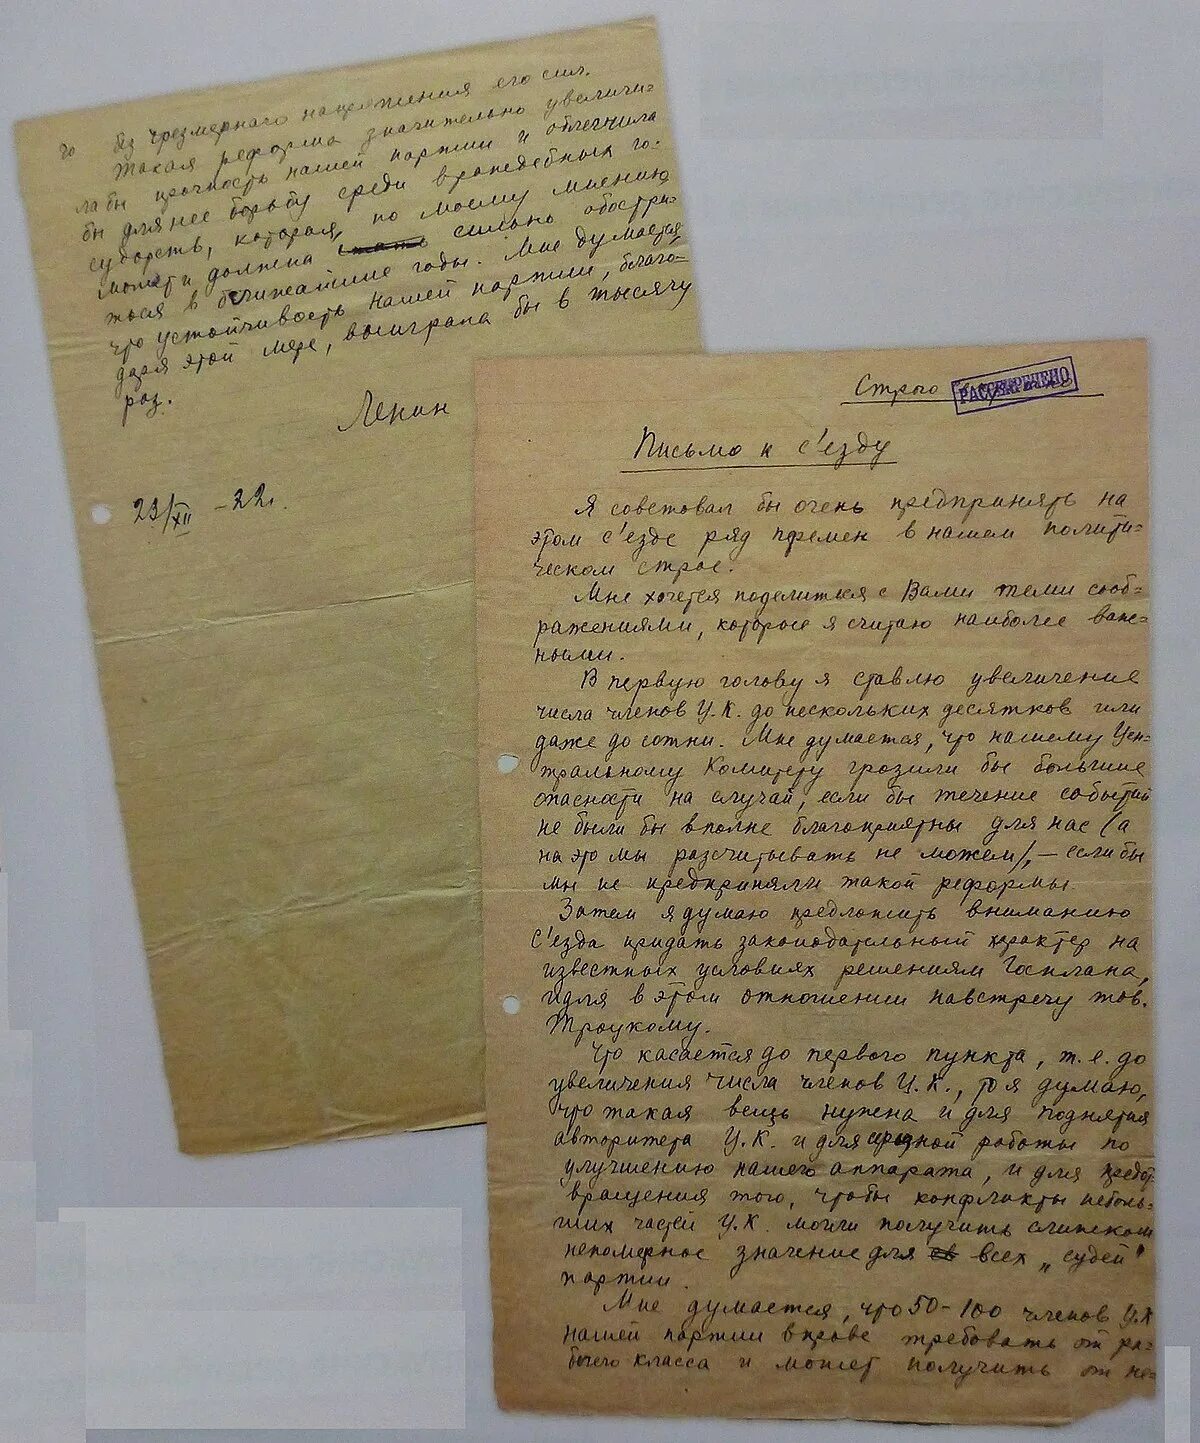 Строго
РАССЕКРЕЧЕНО
Письмо к с'езду
Я советовал бы очень предпринять на
этом с'езде ряд перемен в нашем полити-
ческом строе.
Мне хочется поделиться с Вами теми сооб-
ражениями, которые я считаю наиболее важ-
ными.
В первую голову я ставлю увеличение
числа членов Ц.К. до нескольких десятков или
даже до сотни. Мне думается, что нашему Цен-
тральному Комитету грозили бы большие
опасности на случай, если бы течение событий
не было бы вполне благоприятны для нас (а
на это мы рассчитывать не можем), – если бы
мы не предприняли такой реформы.
Затем я думаю предложить вниманию
с'езда придать законодательный характер на
известных условиях решениям Госплана,
идя в этом отношении навстречу тов.
Троцкому.
Что касается до первого пункта, т.е. до
увеличения числа членов Ц.К., то я думаю,
что такая вещь нужна и для поднятия
авторитета Ц.К. и для работы по
улучшению нашего аппарата, и для предот-
вращения того, чтобы конфликты неболь-
ших частей Ц.К. могли получить слишком
непомерное значение для всех „судеб"
партии.
Мне думается, что 50-100 членов Ц.К
нашей партии вправе требовать от ра-
бочего класса и может получить от не-
го без чрезмерного напряжения его сил.
Такая реформа значительно увеличи-
ла бы прочность нашей партии и облегчила
бы для нее борьбу среди враждебных го-
сударств, которая, по моему мнению,
может и должна сильно обостри-
ться в ближайшие годы. Мне думается,
что устойчивость нашей партии, благо-
даря этой мере, выиграла бы в тысячу
раз.
Ленин
23/XII – 22г.